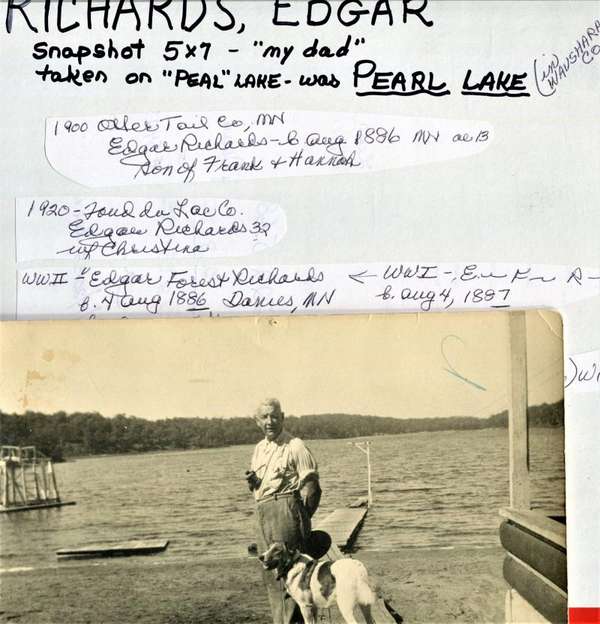 RICHARDS, EDGAR
Snapshot 5x7 - "my dad"
taken on "PEAL" LAKE - was PEARL LAKE (in WAUSHARA CO
1900 Otter Tail Co, MN
Edgar Richards - b Aug 1886 MN ae 13
son of Frank & Hannah
1920 - Fond du Lac Co.
Edgar Richards 32
w/ Christina
WWII - "Edgar Forest Richards ← WWI - E~ F~ R~
b. 4 Aug 1886 MN b. Aug 4, 1887